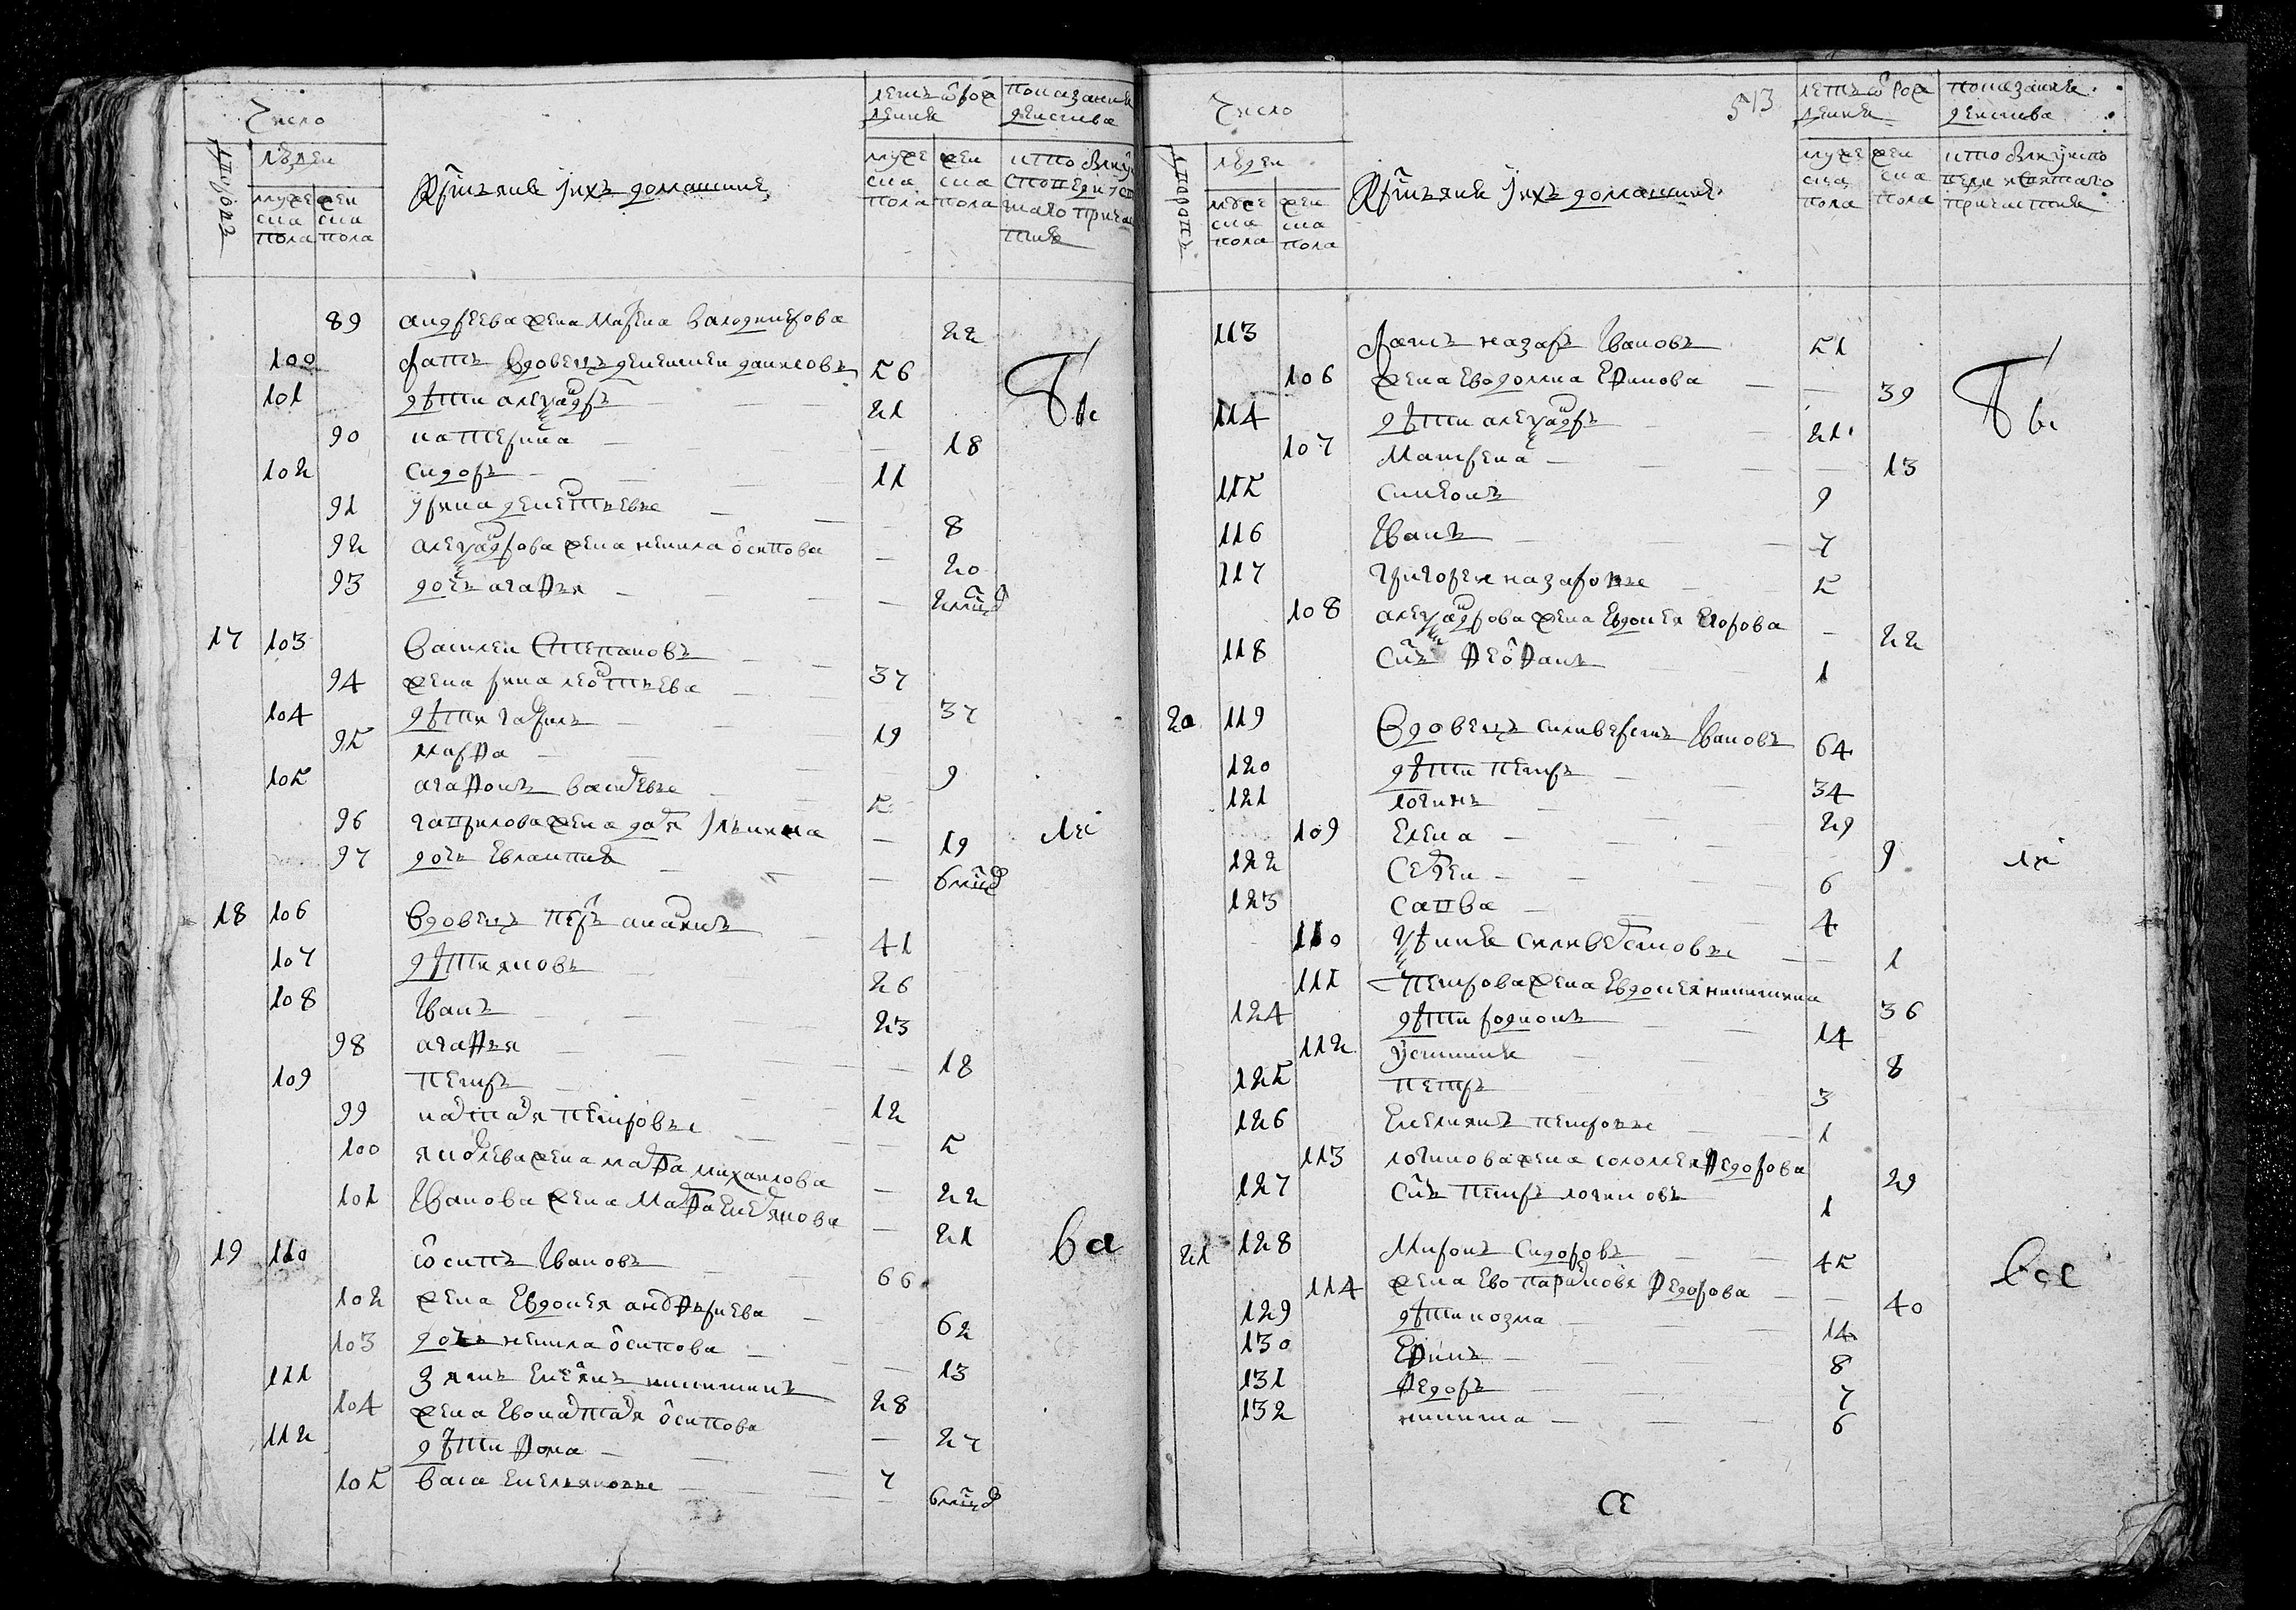 Число
людеи
мужеска пола
женска пола
Крстьяне и ихъ домашние
летъ ѿ рождения
мужеска пола
женска пола
показание деиства
кто былъ у исповеди и стаго причастия
89 андреева жена матрена володимерова 22
100 братъ вдовецъ дементеи даниловъ 56
101 дѣти александръ 21
90 катерина 18
102 сидоръ 11
91 ирина дементьевы 8
92 александрова жена ненила осипова 20
93 дочь агафия 2 мцъ
17 103 василеи степановъ 37
94 жена ирина леонтьева 37
104 дѣти гаврилъ 19
95 марфа 9
105 агафонъ васильевы 5
96 гаврилова жена дарья ильина 19
97 дочь евлампия 6 мцъ
18 106 вдовецъ петръ ананьинъ 41
107 дѣти яковъ 26
108 иванъ 23
98 агафия 18
109 петръ 12
99 наталья петровы 5
100 яковлева жена марфа михаилова 22
101 иванова жена марфа емельянова 21
19 110 осипъ ивановъ 66
102 жена евдокея 62
103 дочь ненила осипова 13
111 зять емельянъ никитинъ 28
104 жена ево наталья осипова 27
112 дѣти фома 7
105 васа емельяновы 6 мцъ
513
Число
людеи
мужеска пола
женска пола
Крстьяне и ихъ домашние
летъ ѿ рождения
мужеска пола
женска пола
показание деиства
кто былъ у исповеди и стаго причастия
113 братъ назаръ ивановъ 51
106 жена еводокиа ефимова 39
114 дѣти александръ 21
107 матрена 13
115 симеонъ 9
116 иванъ 7
117 григореи назаровы 5
108 александрова жена евдокея егорова 22
118 снъ феофанъ 1
20 119 вдовецъ силиверстъ ивановъ 64
120 дѣти петръ 34
121 логинъ 29
109 елена 9
122 сергеи 6
123 савва 4
110 силиверстовы 1
111 петрова жена евдокея никитина 36
124 дѣти родионъ 14
112 устиния 8
125 петръ 3
126 емелианъ петровы 1
113 логинова жена соломея федорова 29
127 снъ петръ логиновъ 1
21 128 миронъ сидоровъ 45
114 жена ево парасковья федорова 40
129 дѣти козма 14
130 ефимъ 8
131 федоръ 7
132 никита 6